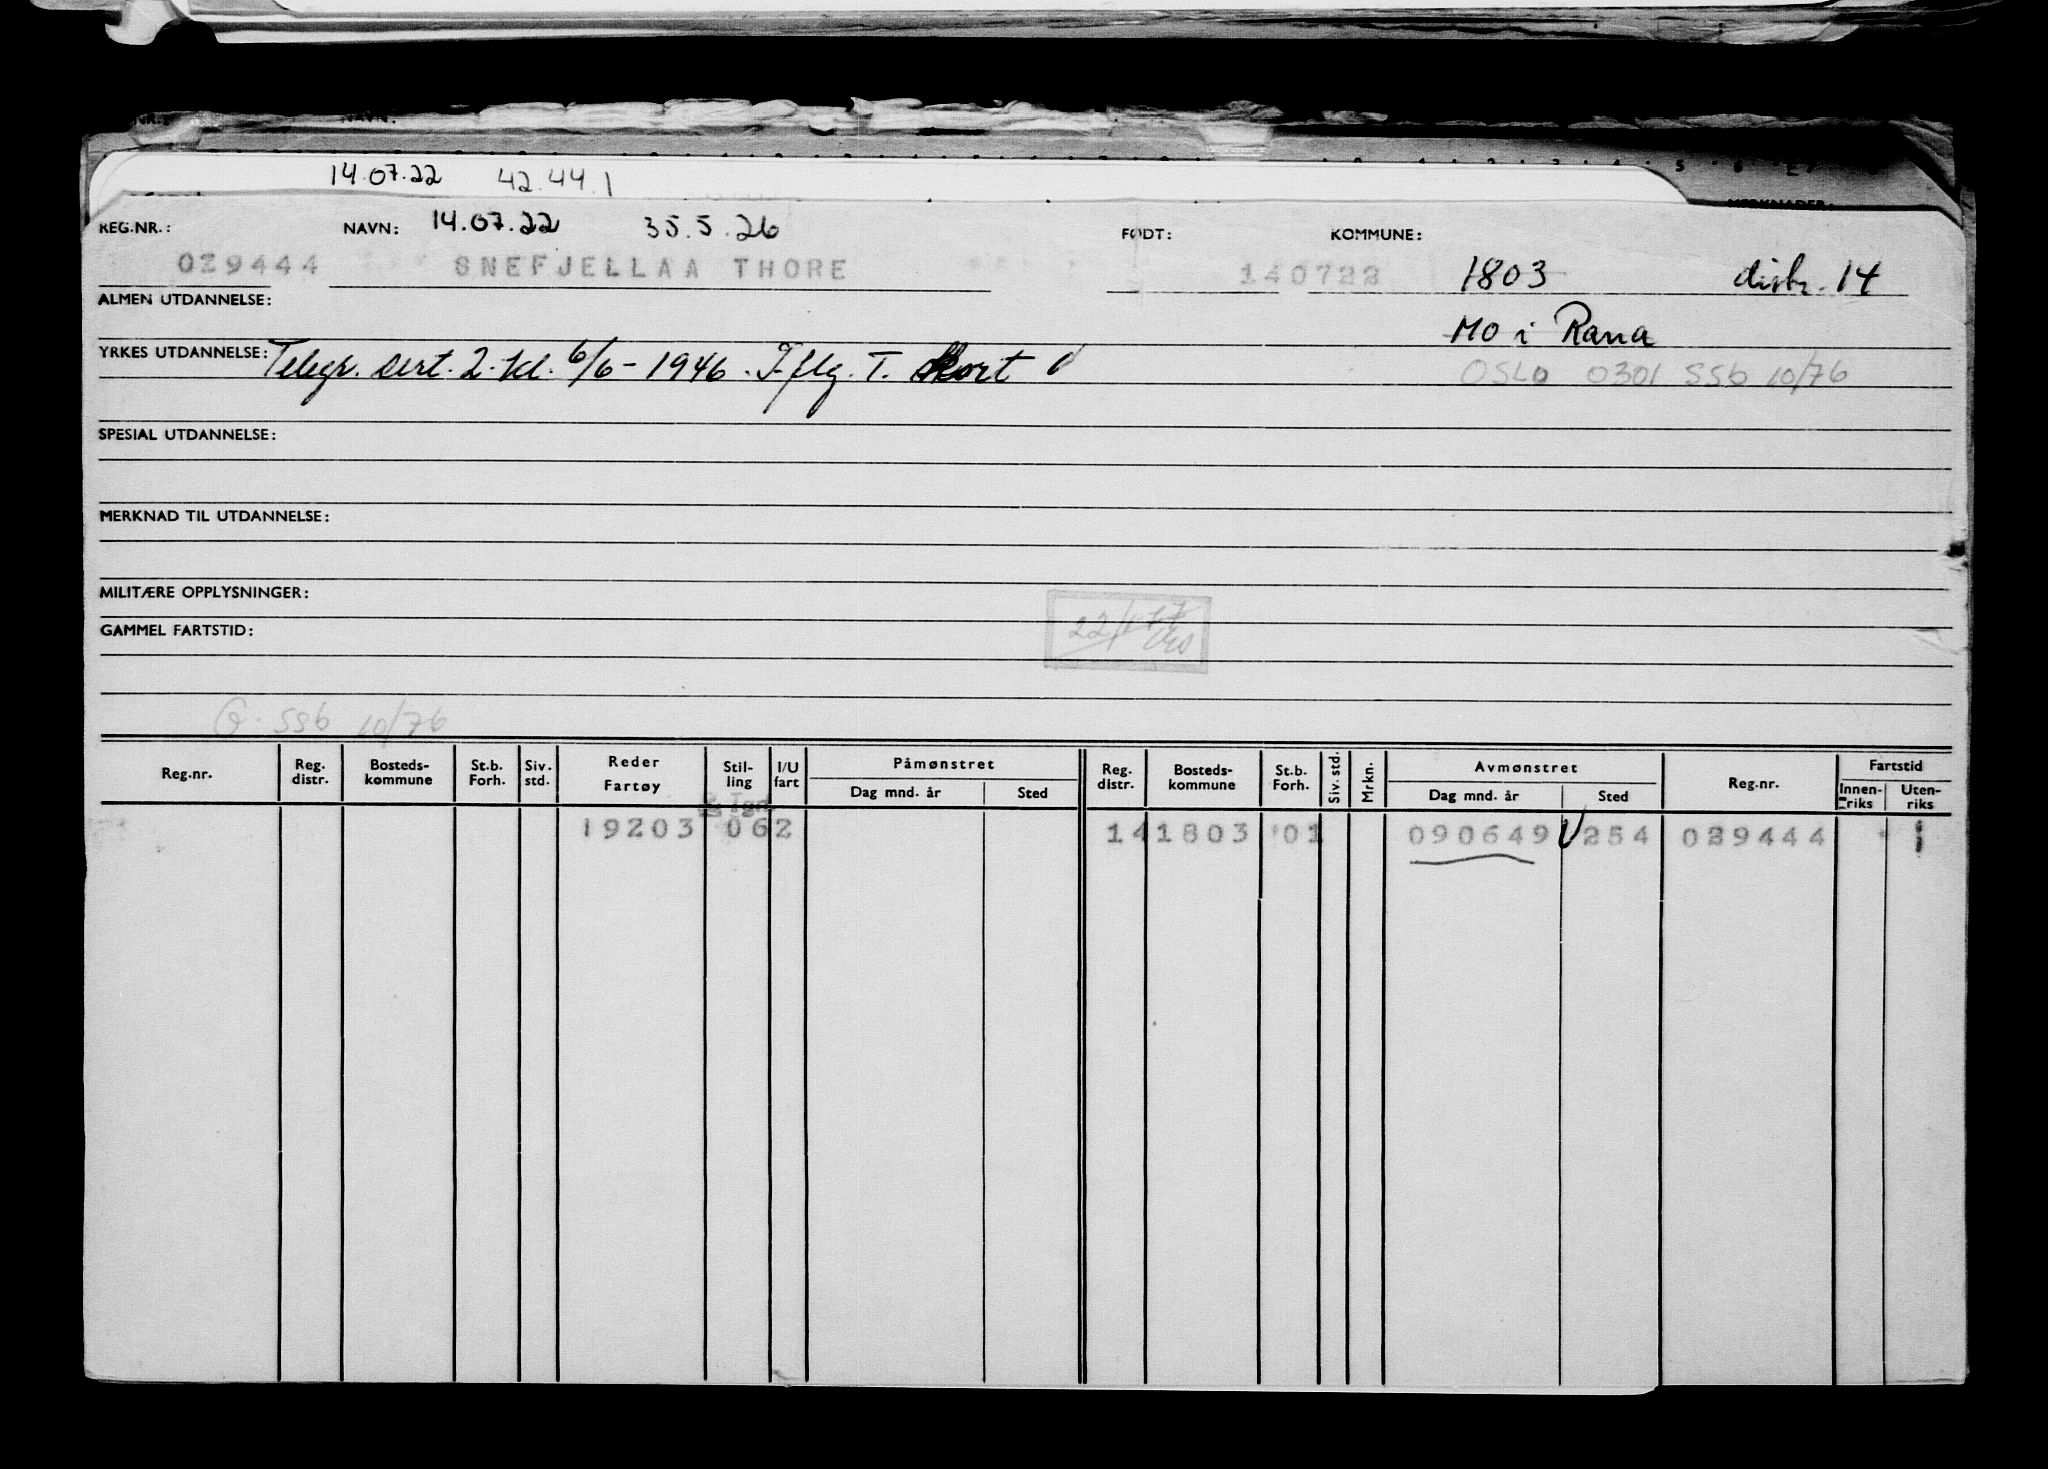 NAVN:
14.07.22 42.44.1
REG.NR.: NAVN: 14.07.22 35.5.26 FØDT: KOMMUNE:
029444 SNEFJELLAA THORE 140722 1803 distr. 14
ALMEN UTDANNELSE:
Mo i Rana
YRKES UTDANNELSE: Telegr. sert. 2. kl. 6/6-1946. I flg. T. kort
OSLO 0301 SSB 10/76
SPESIAL UTDANNELSE:
MERKNAD TIL UTDANNELSE:
MILITÆRE OPPLYSNINGER:
GAMMEL FARTSTID:
G. SSB 10/76
Reg.nr. Reg. distr. Bosteds-kommune St.b. Forh. Siv. std. Reder Fartøy Stil-ling I/U fart Påmønstret Dag mnd. år Sted Reg. distr. Bosteds-kommune St.b. Forh. Siv. std. Mrkn. Avmønstret Dag mnd. år Sted Reg.nr. Fartstid Innen-riks Uten-riks
19203 062 14 1803 01 090649 254 029444 1